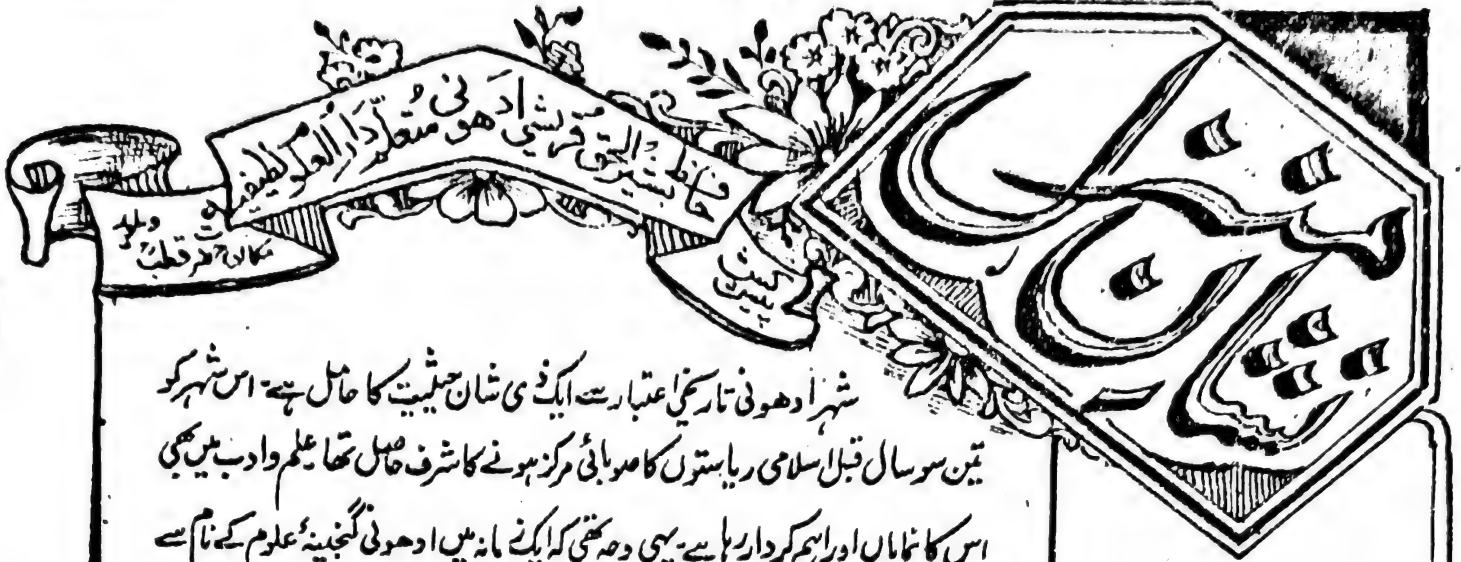 پیش کش
حافظ بشیر الحق قریشی ادھونی متعلم دار العلوم لطیفیہ
حضرت قطب ویلور
شہر ادھونی تاریخی اعتبار سے ایک ذی شان حیثیت کا حامل ہے۔ اس شہر کو
تین سو سال قبل اسلامی ریاستوں کا صوبائی مرکز ہونے کا شرف حاصل تھا علم وادب میں بھی
اس کا نمایاں اور اہم کردار رہا ہے۔ یہی وجہ تھی کہ ایک زمانہ میں ادھونی گنجینۂ علوم کے نام سے